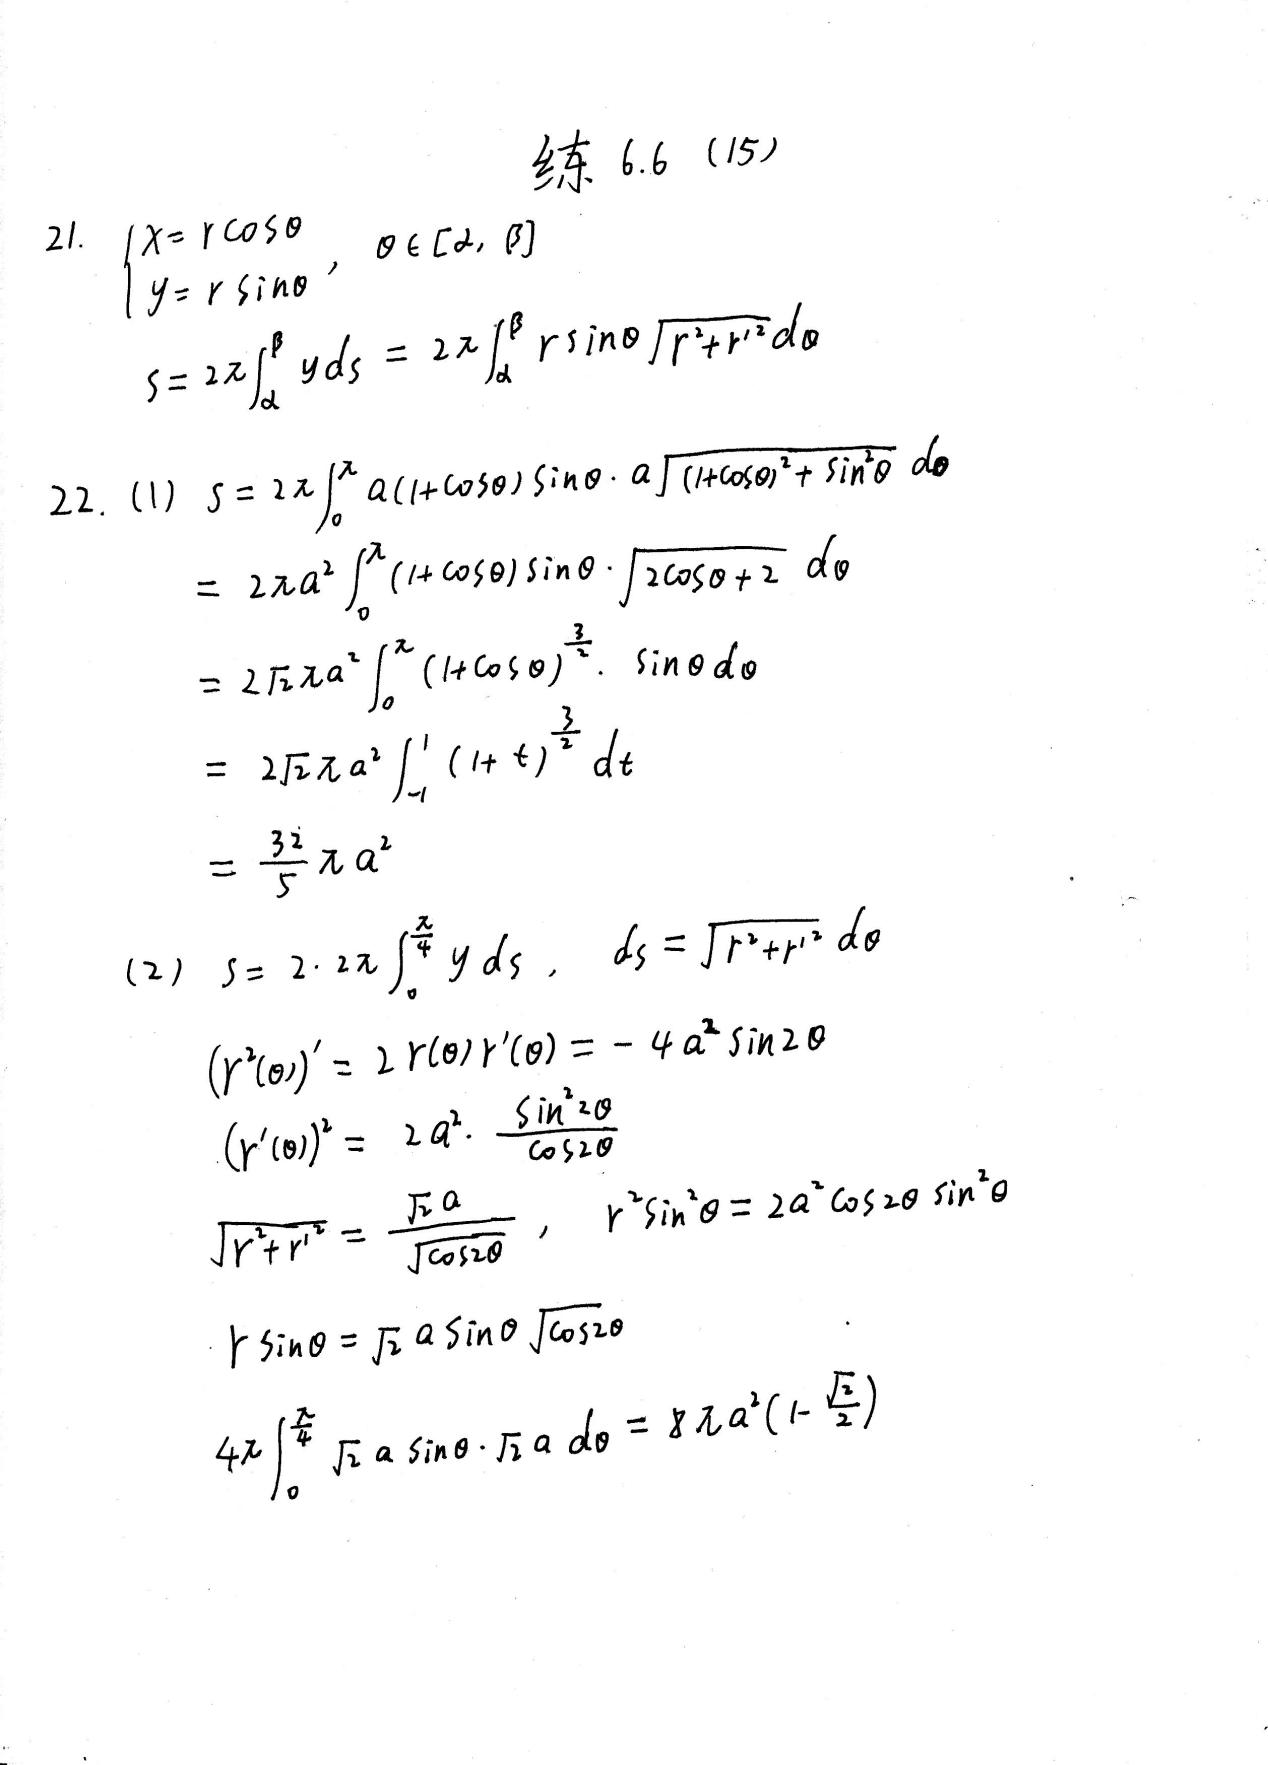 练 6.6 (15)
21. { x = r cosθ
y = r sinθ , θ ∈ [α, β]
S = 2π ∫_α^β y ds = 2π ∫_α^β r sinθ √(r²+r'²) dθ
22. (1) S = 2π ∫_0^π a(1+cosθ) sinθ · a √((1+cosθ)² + sin²θ) dθ
= 2πa² ∫_0^π (1+cosθ) sinθ · √(2cosθ+2) dθ
= 2√2 πa² ∫_0^π (1+cosθ)^(3/2) · sinθ dθ
= 2√2 πa² ∫_{-1}^1 (1+t)^(3/2) dt
= 32/5 πa²
(2) S = 2·2π ∫_0^(π/4) y ds , ds = √(r²+r'²) dθ
(r²(θ))' = 2r(θ)r'(θ) = -4a² sin2θ
(r'(θ))² = 2a² · sin²2θ/cos2θ
√(r²+r'²) = √2 a/√cos2θ , r² sin²θ = 2a² cos2θ sin²θ
r sinθ = √2 a sinθ √cos2θ
4π ∫_0^(π/4) √2 a sinθ · √2 a dθ = 8πa²(1-√2/2)